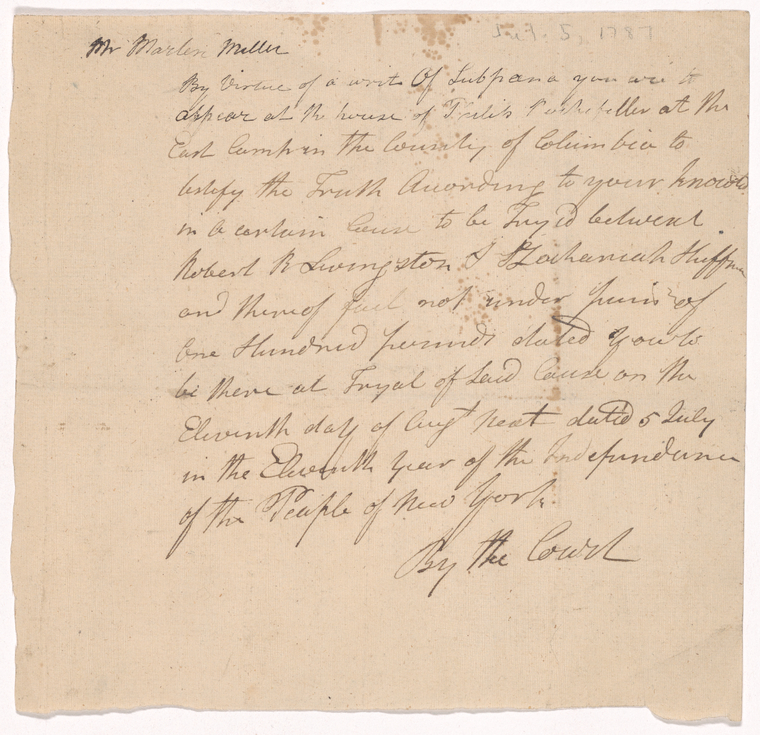 Jul. 5, 1787
Mr Marten Miller
By Virtue of a writ Of Subpana you are to
appear at the house of at the
East Camp in the County of Columbia to
testify the Truth According to your knowld
in a certain Cause to be Try'd betwent
Robert R Livingston & Zachariah Huffman
and thereof fail not under pain of
one Hundred pounds dated you to
be there at Tryal of Said Cause on the
Eleventh day of Augt next dated 5 July
in the Eleventh Year of the Independance
of the People of New York
By the Court